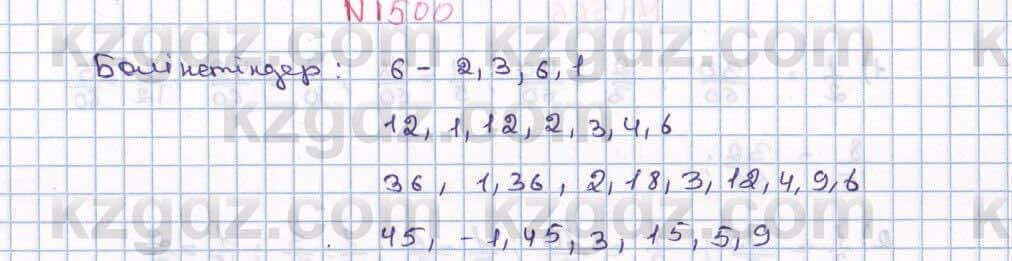 N1500
Бөлінетіндер: 6 - 2, 3, 6, 1
12, 1, 12, 2, 3, 4, 6
36, 1, 36, 2, 18, 3, 12, 4, 9, 6
45, - 1, 45, 3, 15, 5, 9
kzgdz.com